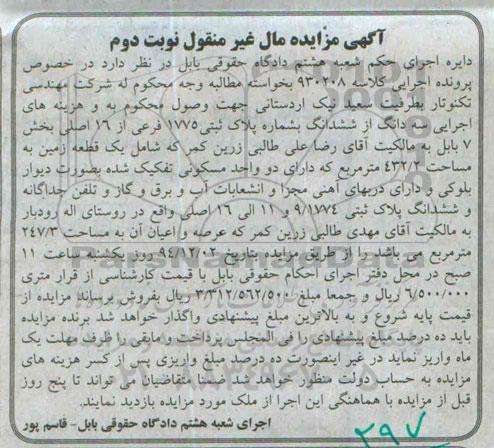 آگهی مزایده مال غیر منقول نوبت دوم
دایره اجرای حکم شعبه هشتم دادگاه حقوقی بابل در نظر دارد در خصوص
پرونده اجرایی کلاسه ۹۳۰۲۰۸ بخواسته مطالبه وجه محکوم له شرکت مهندسی
تکنوتار بطرفیت سعید نیک اردستانی جهت وصول محکوم به و هزینه های
اجرایی سه دانگ از ششدانگ بشماره پلاک ثبتی ۱۷۷۵ فرعی از ۱۶ اصلی بخش
۷ بابل به مالکیت آقای رضا علی طالبی زرین کمر که شامل یک قطعه زمین به
مساحت ۴۳۲/۲ مترمربع که دارای دو واحد مسکونی تفکیک شده بصورت دیوار
بلوکی و دارای دربهای آهنی مجزا و انشعابات آب و برق و گاز و تلفن جداگانه
و ششدانگ پلاک ثبتی ۹/۱۷۷۴ و ۱۱ الی ۱۶ اصلی واقع در روستای اله رودبار
به مالکیت آقای مهدی طالبی زرین کمر که عرصه و اعیان آن به مساحت ۲۴۷/۳
مترمربع می باشد را از طریق مزایده بتاریخ ۹۴/۱۲/۰۲ روز یکشنبه ساعت ۱۱
صبح در محل دفتر اجرای احکام حقوقی بابل با قیمت کارشناسی از قرار متری
۶/۵۰۰/۰۰۰ ریال و جمعا مبلغ ۳/۳۱۲/۵۶۲/۵۰۰ ریال بفروش برساند مزایده از
قیمت پایه شروع و به بالاترین مبلغ پیشنهادی واگذار خواهد شد برنده مزایده
باید ده درصد مبلغ پیشنهادی را فی المجلس پرداخت و مابقی را ظرف مهلت یک
ماه واریز نماید در غیر اینصورت ده درصد مبلغ واریزی پس از کسر هزینه های
مزایده به حساب دولت منظور خواهد شد ضمنا متقاضیان می تواند تا پنج روز
قبل از مزایده با هماهنگی این اجرا از ملک مورد مزایده بازدید نمایند.
اجرای شعبه هشتم دادگاه حقوقی بابل- قاسم پور
۲۹۷